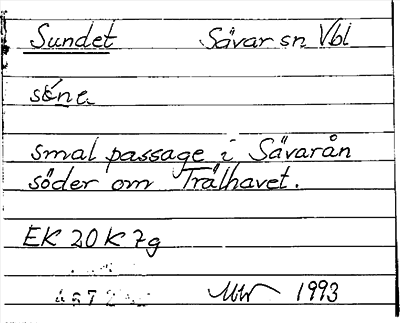 Sundet Sävar sn Vbl
smal passage i Sävarån
söder om Trälhavet.
EK 20 K 7g
1993